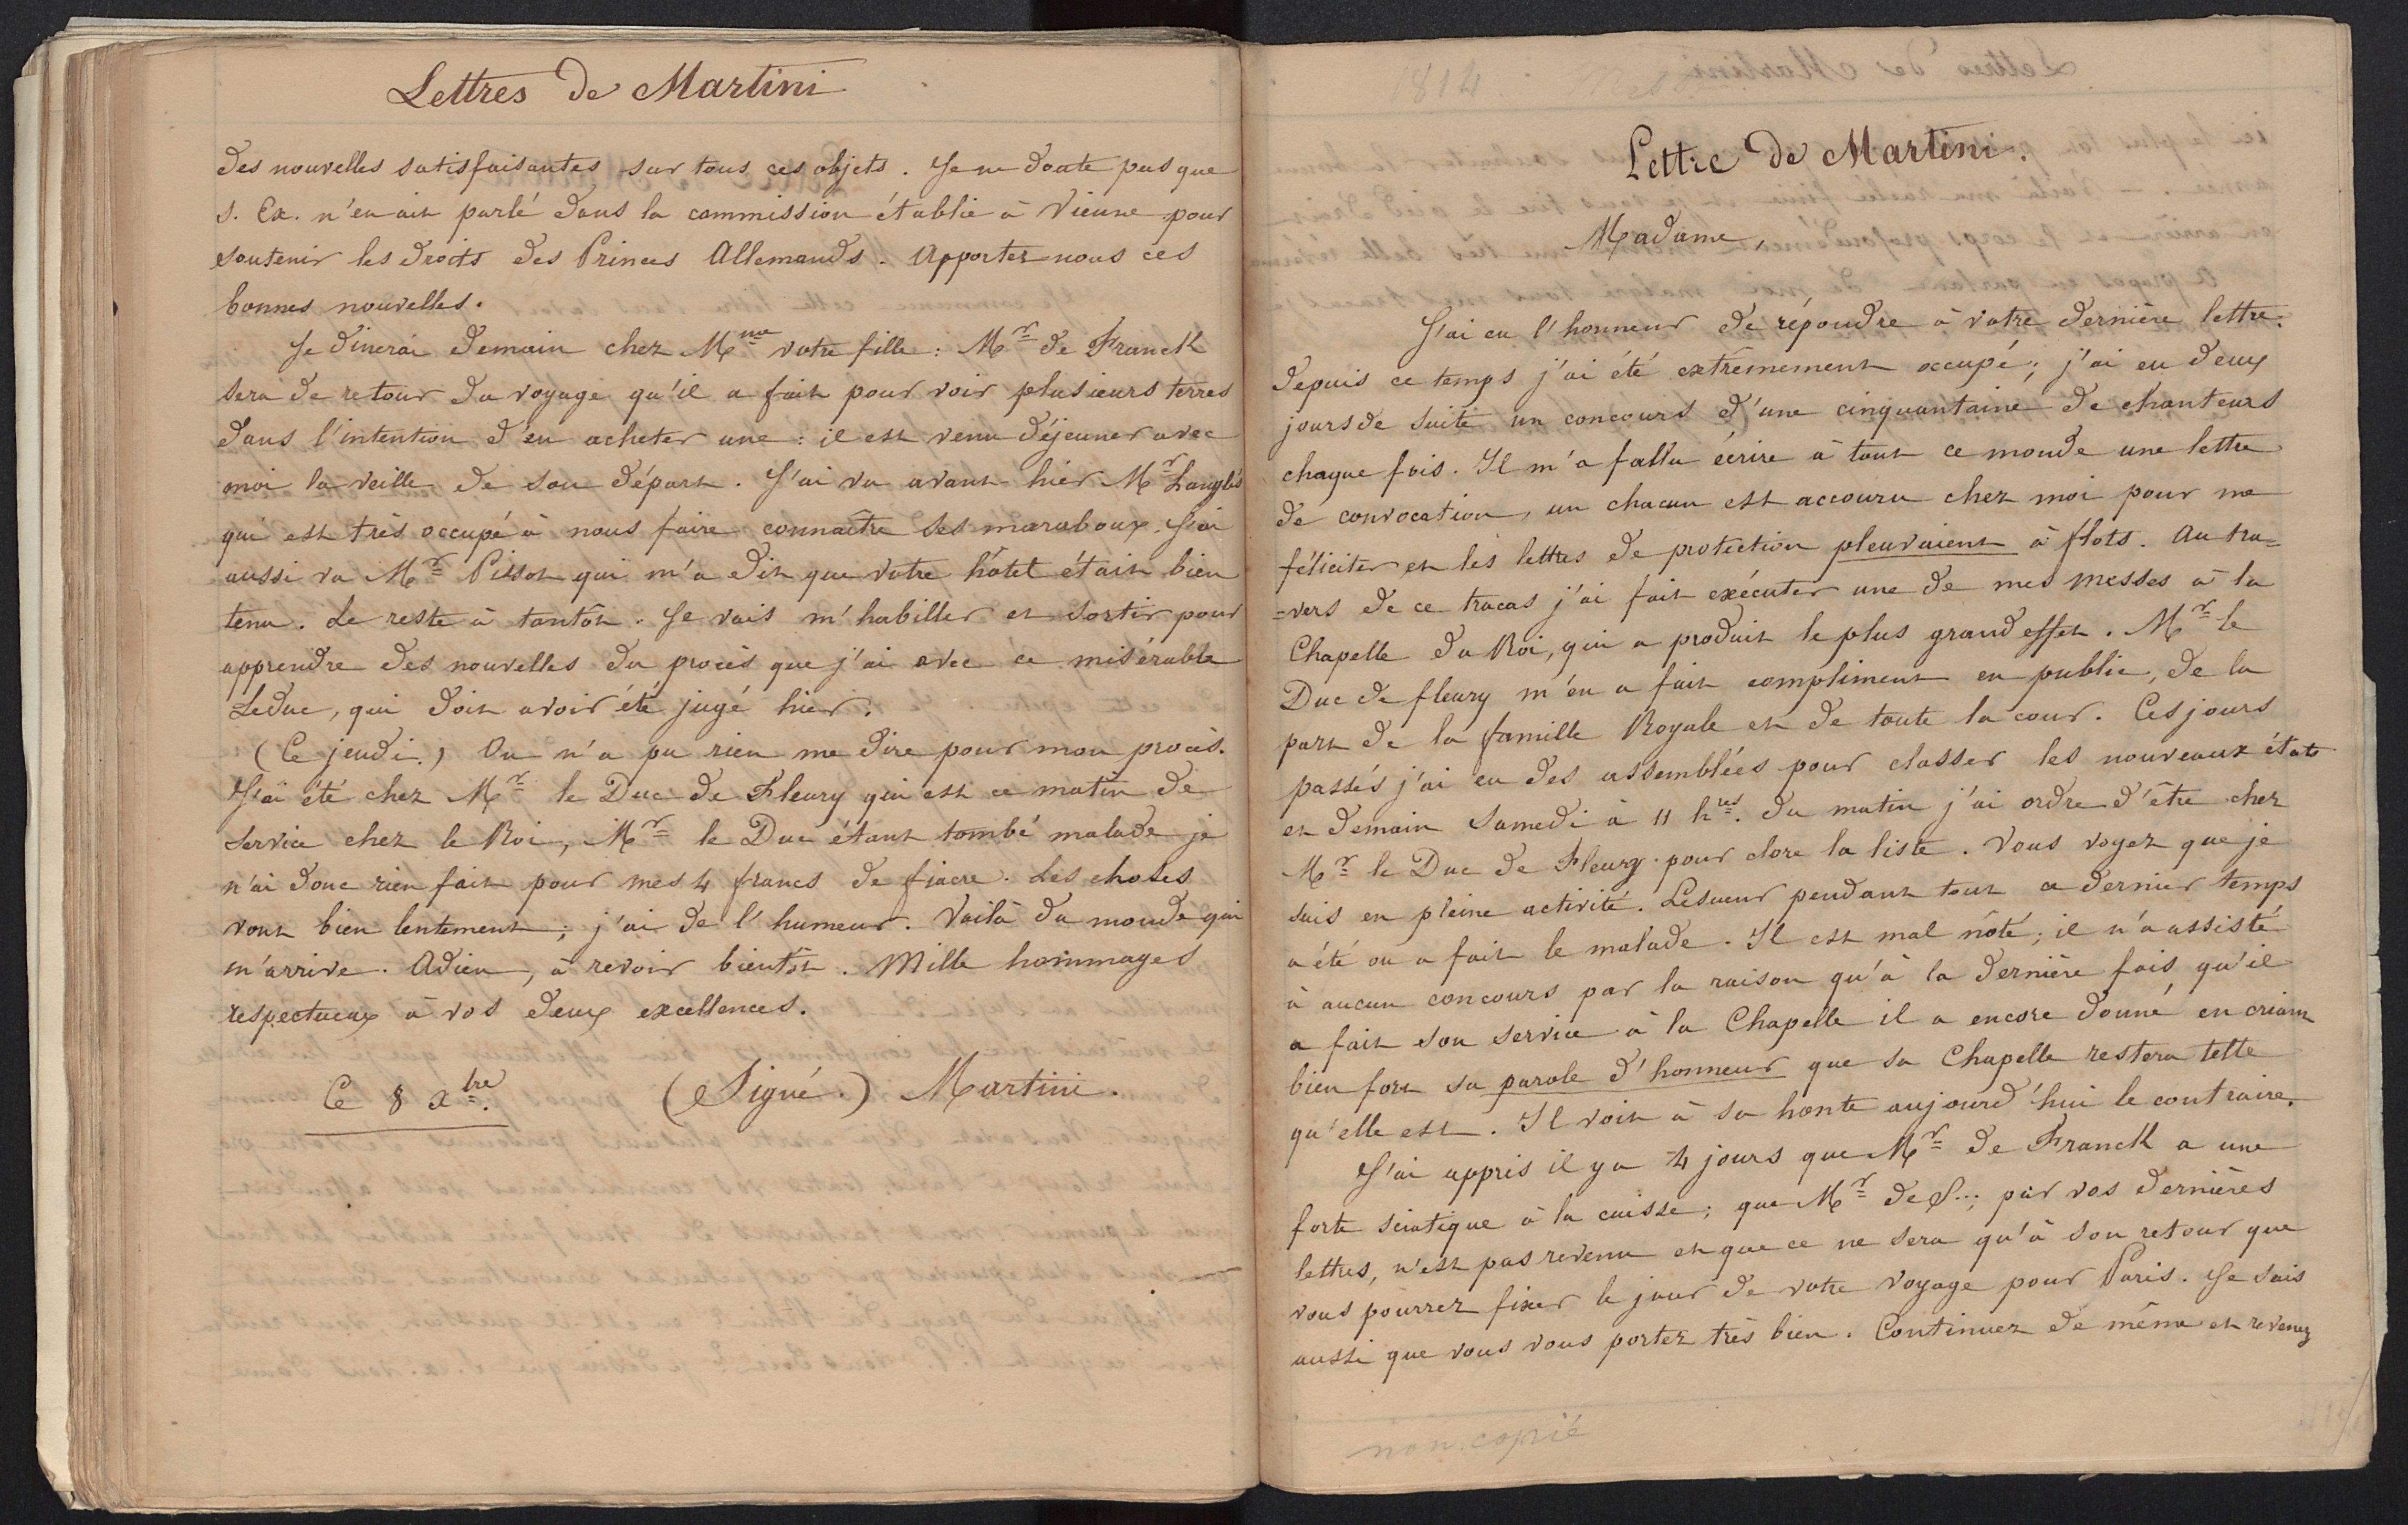 Lettres de Martini
des nouvelles satisfaisantes sur tous ces objets. Je ne doute pas que
S. Ex. n'en ait parlé dans la commission établie à Vienne pour
soutenir les droits des Princes Allemands. Apportez nous ces
bonnes nouvelles.
Je dinerai demain chez Mme votre fille: Mr de Franck
sera de retour du voyage qu'il a fait pour voir plusieurs terres
dans l'intention d'en acheter une: il est venu déjeuner avec
moi la veille de son départ. J'ai vu avant-hier Mr Langlès
qui est très occupé à nous faire connaître ses maraboux. J'ai
aussi vu Mr Pissot qui m'a dit que votre hôtel était bien
tenu. Le reste à tantôt. Je vais m'habiller et sortir pour
apprendre des nouvelles du procès que j'ai avec ce misérable
Leduc, qui doit avoir été jugé hier.
(Ce jeudi.) On n'a pu rien me dire pour mon procès.
J'ai été chez Mr le Duc de Fleury qui est ce matin de
service chez le Roi, Mr le Duc étant tombé malade je
n'ai donc rien fait pour mes 4 francs de fiacre. Les choses
vont bien lentement; j'ai de l'humeur. Voilà du monde qui
m'arrive. Adieu, à revoir bientôt. Mille hommages
respectueux à vos deux excellences.
Ce 8 Xbre. (Signé.) Martini.
1814 Messe
Lettre de Martini.
Madame,
J'ai eu l'honneur de répondre à votre dernière lettre.
depuis ce temps j'ai été extrêmement occupé; j'ai eu deux
jours de suite un concours d'une cinquantaine de chanteurs
chaque fois. Il m'a fallu écrire à tout ce monde une lettre
de convocation, un chacun est accouru chez moi pour me
féliciter et les lettres de protection pleuvaient à flots. Au tra=
=vers de ce tracas j'ai fait exécuter une de mes messes à la
Chapelle du Roi, qui a produit le plus grand effet. Mr le
Duc de fleury m'en a fait compliment en public, de la
part de la famille Royale et de toute la cour. Ces jours
passés j'ai eu des assemblées pour classer les nouveaux états
et demain samedi à 11 hres. du matin j'ai ordre d'être chez
Mr le Duc de Fleury pour clore la liste. Vous voyez que je
suis en pleine activité. Lesueur pendant tout ce dernier temps
a été ou a fait le malade. Il est mal nôté; il n'a assisté
à aucun concours par la raison qu'à la dernière fois, qu'il
a fait son service à la Chapelle il a encore donné, en criant
bien fort sa parole d'honneur que sa Chapelle restera telle
qu'elle est. Il voit à sa honte aujourd'hui le contraire.
J'ai appris il y a 4 jours que Mr de Franck a une
forte sciatique à la cuisse; que Mr de S..; par vos dernières
lettres, n'est pas revenu et que ce ne sera qu'à son retour que
vous pourrez fixer le jour de votre voyage pour Paris. Je sais
aussi que vous vous portez très bien. Continuez de même et revenez
non copié